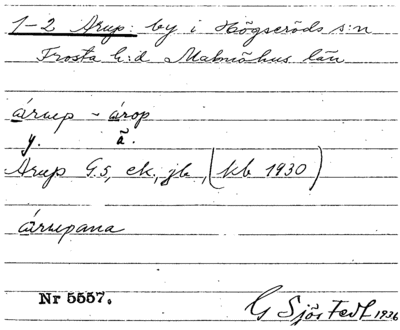 1-2 Arup: by i Högseröds s:n
Frosta h:d Malmöhus län
árup - árop
y. ä.
Arup G.S, ek., jb, (kb 1930)
árupana
Nr 5557.
G Sjöstedt 1936